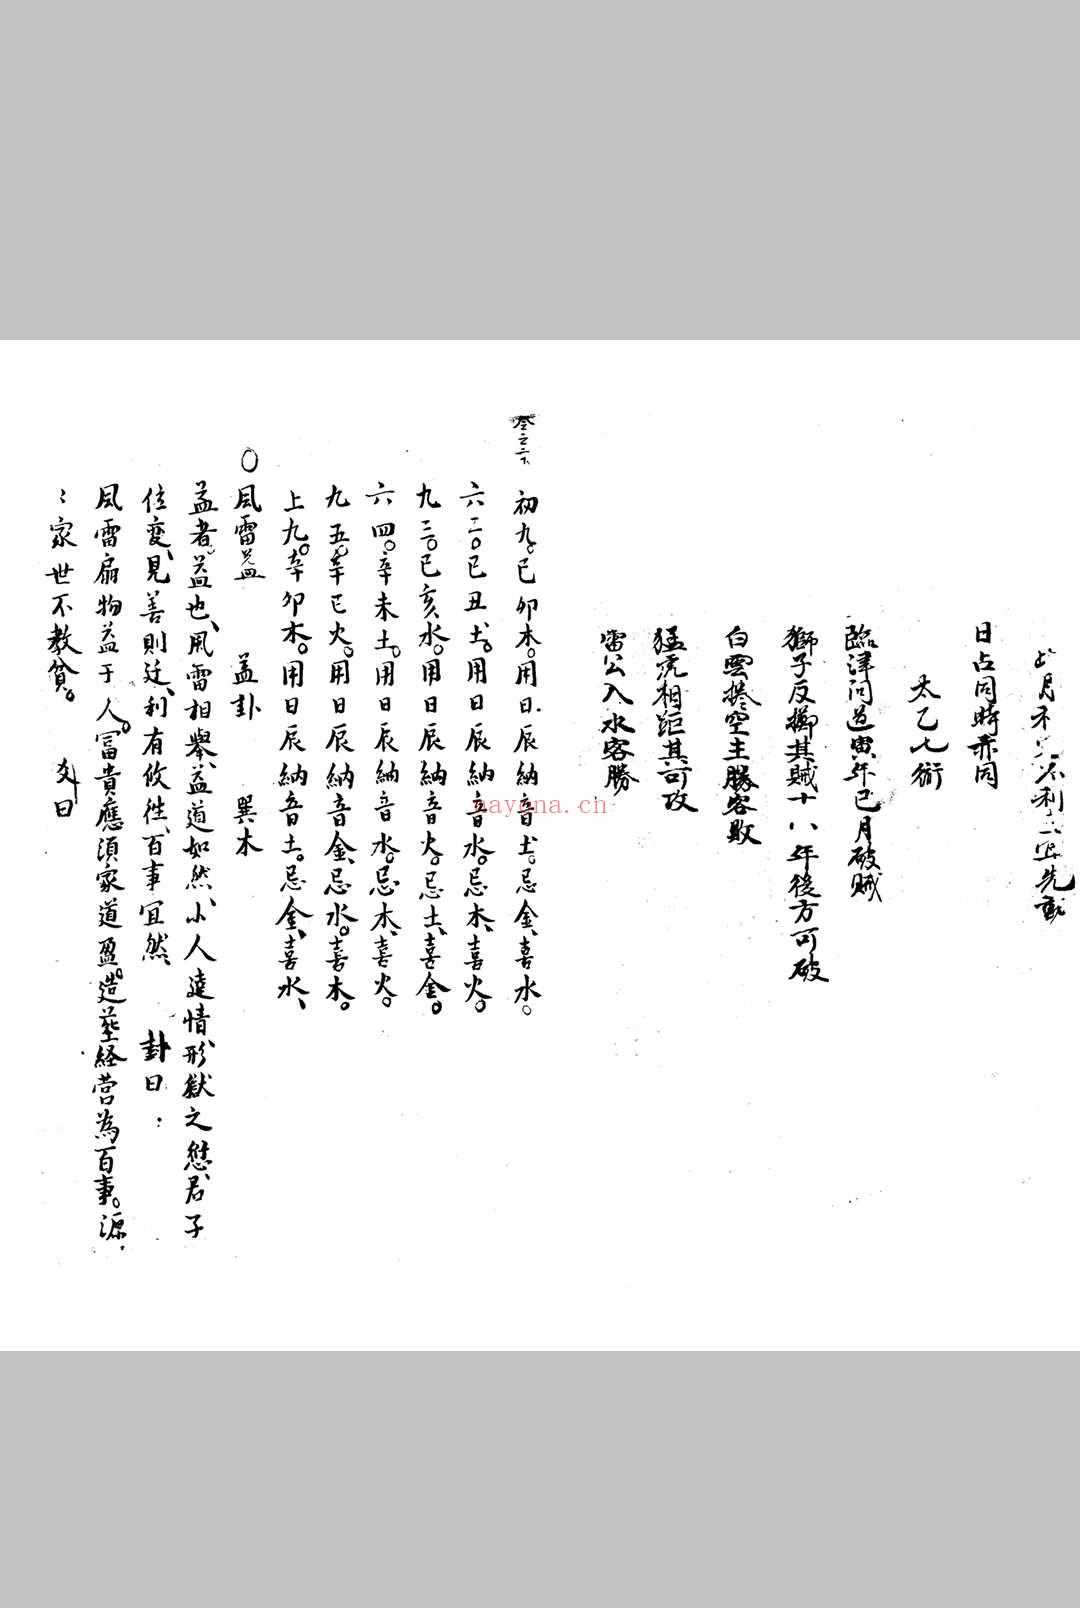 此月不
不利
宜先動
日占同時亦同
太乙七術
臨津问道寅年已月破贼
獅子反擲其贼十八年後方可破
白雲捲空主勝客敗
猛虎相距其可攻
雷公入水客勝
卷之六下
初九。已卯木。用日辰納音土。忌金、喜水。
六二。已丑土。用日辰納音水。忌木、喜火。
九三。已亥水。用日辰納音火。忌土、喜金。
六四。辛未土。用日辰納音水。忌木、喜火。
九五。辛已火。用日辰納音金、忌水。喜木。
上九。辛卯木。用日辰納音土。忌金、喜水、
〇風雷益 益卦 巽木
益者益也、風雷相舉、益道如然、小人達情、形獄之愆、君子
位變、見善則迁、利有攸徃、百事宜然、 卦曰：
風雷扇物益于人。冨貴應湏家道盈。造塟経营為百事。源，
：家世不教貧。 爻曰
nayona.cn